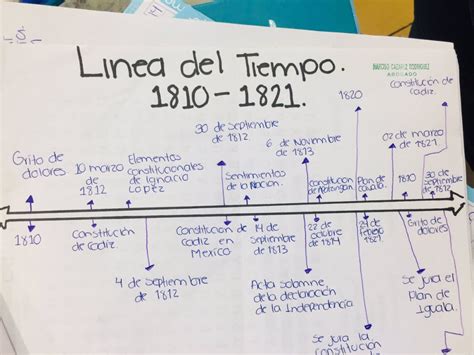 Linea del Tiempo.
1810 - 1821.
MARCELO
RODRIGUEZ
ABOGADO
Grito de
dolores
10 marzo
de
1812
Elementos
constitucionales
de Ignacio
Lopez
30 de Septiembre
de
1812.
Sentimientos
de la Nacion.
6 de Noviembre
de
1813
Constitucion
de Apatzingan
1820
Plan de
Iguala.
Constitución de
Cadiz.
02 de marzo
de
1821.
1810
30 de
Septiembre
de 1812.
1810
Constitución
de Cadiz.
4 de septiembre
de 1812
Constitucion de
Cadiz en
Mexico
14 de
Septiembre
de 1813
Acta solemne
de la declaración
de la Independencia
22 de
octubre
de 1814
Se jura la
constitución
24 de
febrero
1821
Grito de
dolores
Se jura el
Plan de
Iguala.